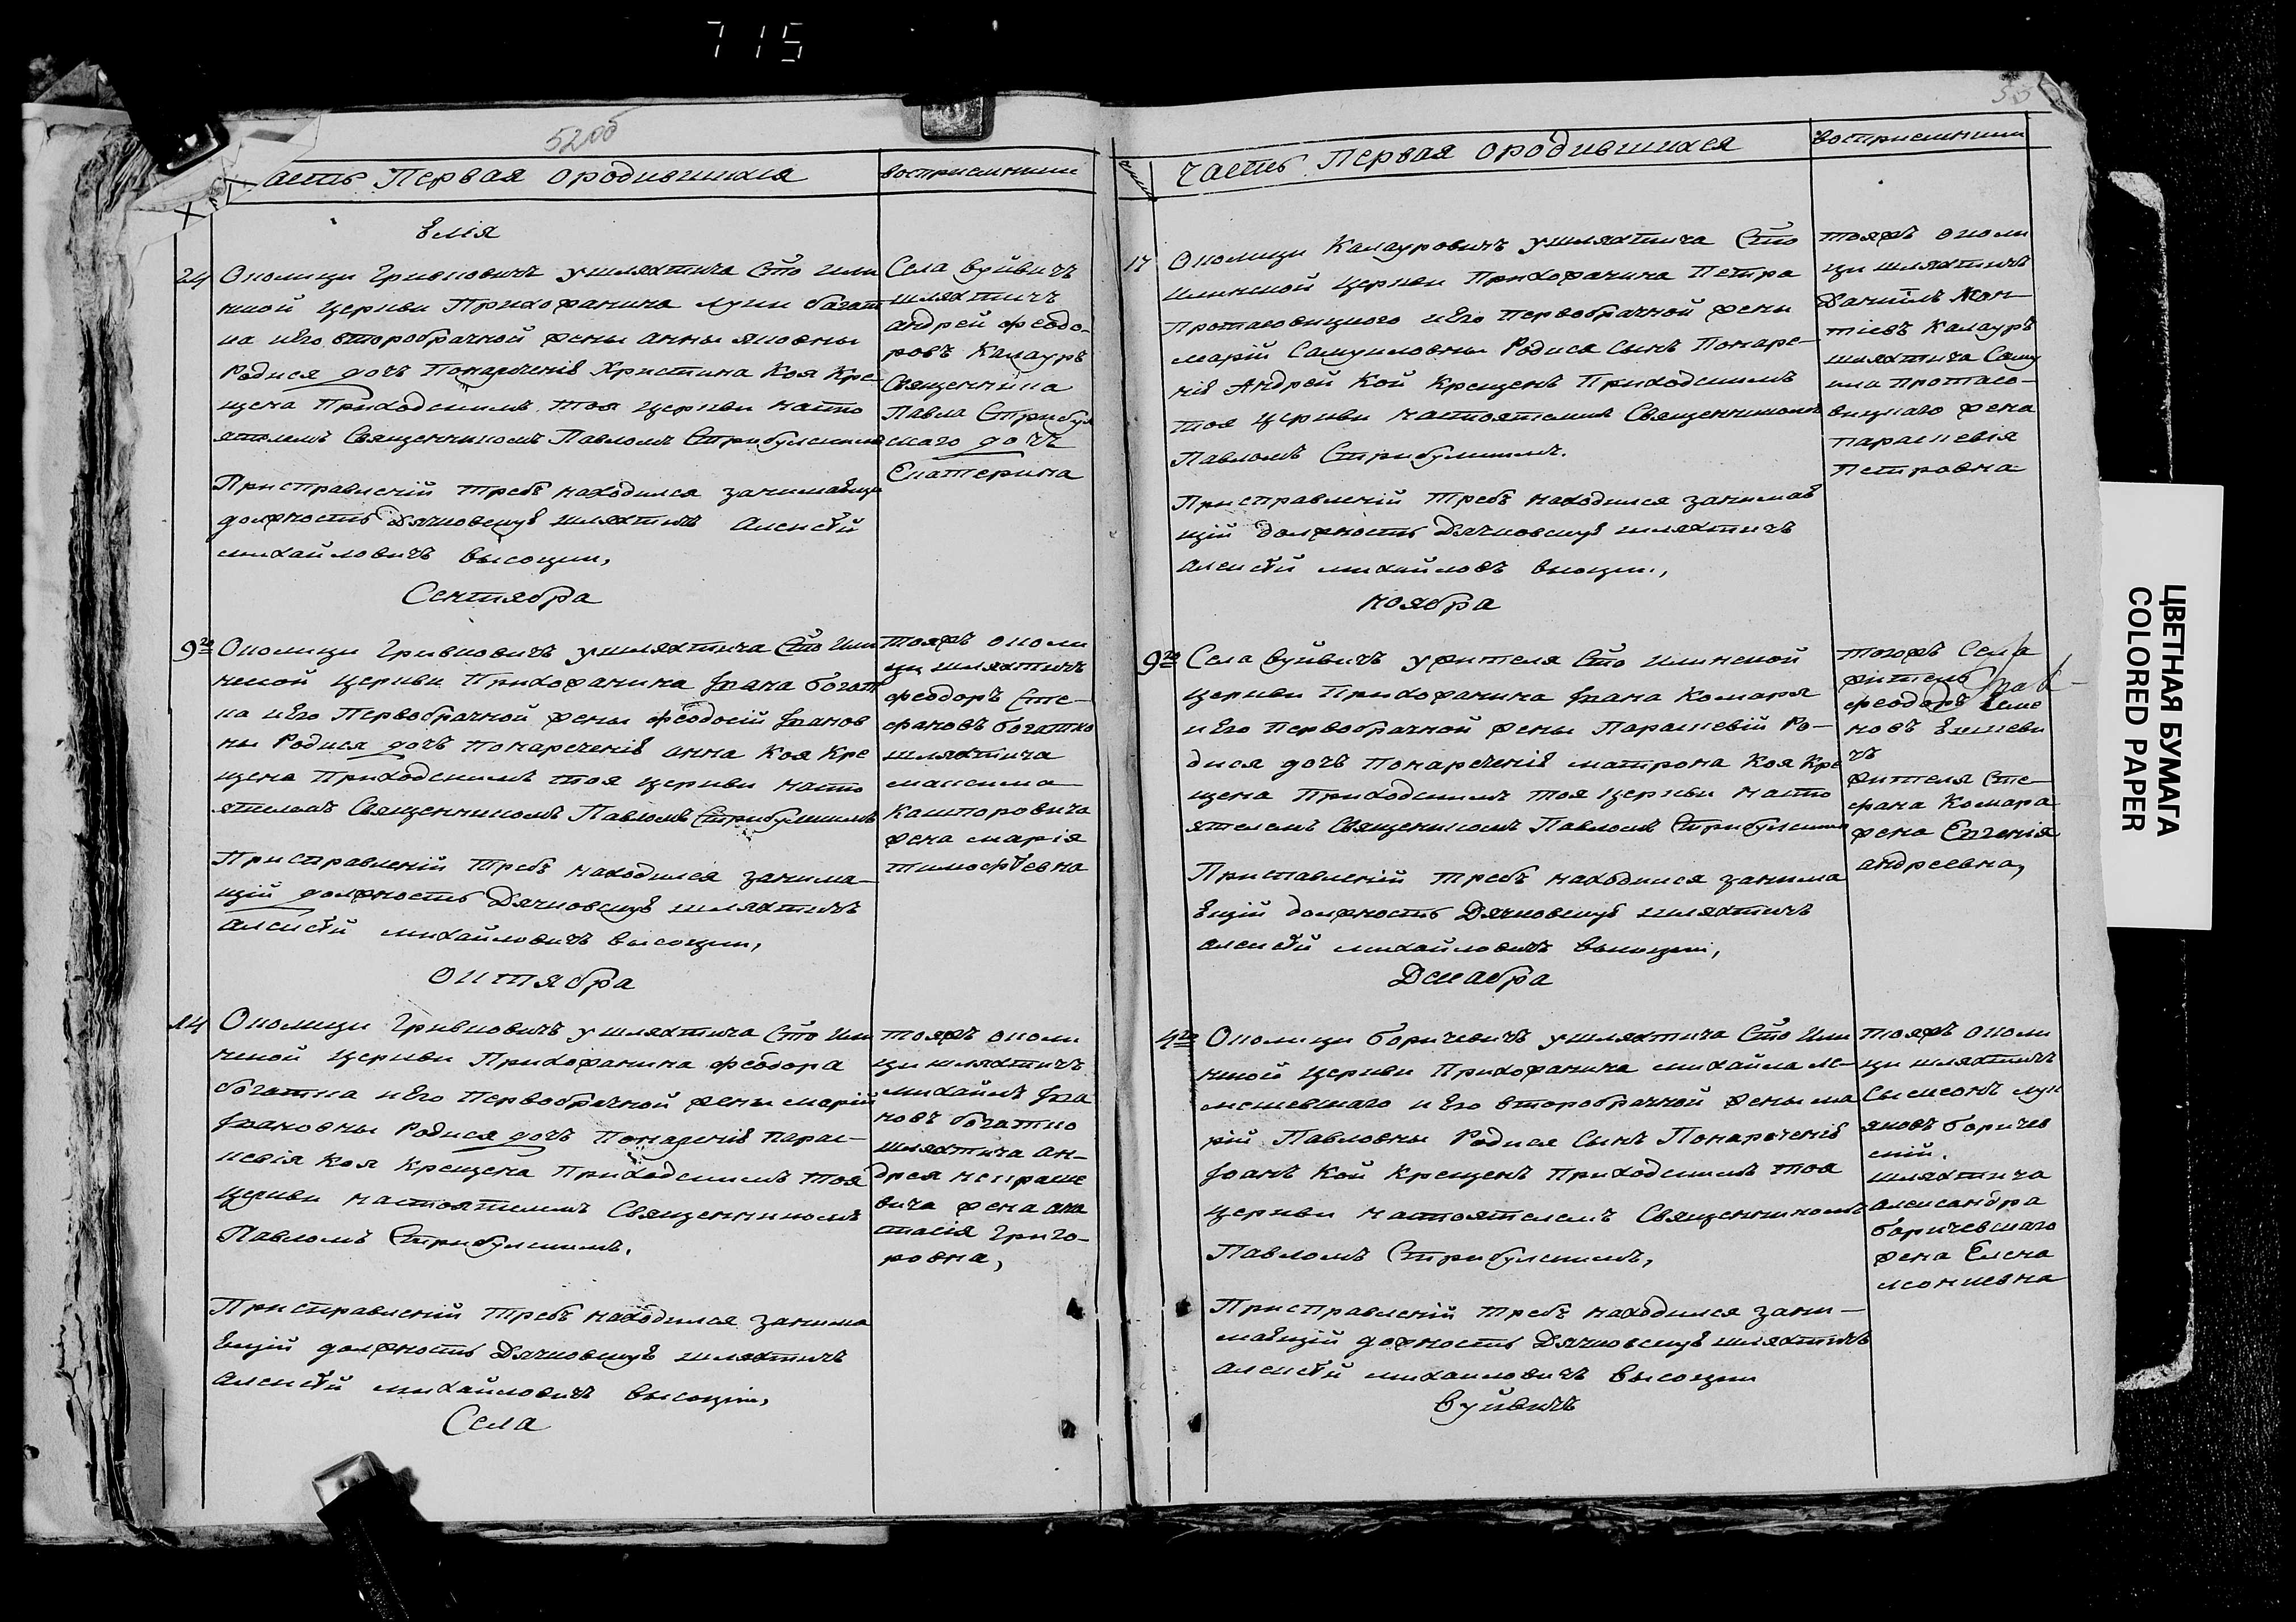 715
52об
асть Первая ородившихся
восприемники
Ѣлія
24
Околици Гривковичъ ушляхтича Сто Или
нской Церкви Прихожанина Луки Богат
ка иЕго второбрачной жены Анны Яковны
Родися дочъ Понареченіѣ Христина Коя Кре
щена Приходскимъ тоя Церкви насто
ятелемъ Священникомъ Павломъ Стрибулскимъ
Присправленій Требъ находился занимаѣщи
должность Дячковскуѣ шляхтичъ Алексѣй
михайловичъ высоцки,
Села Вуйвичъ
шляхтичъ
андрей феодо-
ровъ Калауръ
Священника
Павла Стрибул
скаго дочъ
Екатерина
Сентября
9го
Околици Гривковичъ ушляхтича Сто Или
нской Церкви Прихожанина Іоана богат
ка иЕго Первобрачной жены феодосій Іоанов
ны Родися дочъ понареченіѣ анна Коя Кре
щена Приходскимъ тоя Церкви насто
ятелемъ Священникомъ Павломъ Стрибулскимъ
Присправленій Требъ находился занима-
щій должность Дячковскуѣ шляхтичъ
Алексѣй михайловичъ высоцки,
тояжъ околи
ци шляхтичъ
феодоръ Сте-
фановъ богатко
шляхтича
максима
Кашпоровича
жена марія
тимофѣевна
Октября
14
Околици Гривковичъ ушляхтича Сто Или
нской Церкви Прихожанина феодора
богатка иЕго Первобрачной жены марій
Іоановны Родися дочъ Понареченіѣ парас-
кевія Коя Крещена Приходскимъ тоя
Церкви настоятелемъ Священникомъ
Павломъ Стрибулскимъ.
Присправленій Требъ находился занима
ѣщій должность Дячковскуѣ шляхтичъ
Алексѣй михайловичъ высоцкій,
тояжъ околи
ци шляхтичъ
михаилъ Іоа
новъ богатко
шляхтича ан-
дрея
вича жена
тасія Григо-
ровна,
Села
53
часть Первая ородившихся
восприемники
17
Околици Калауровичъ ушляхтича Сто
Илинской Церкви Прихожанина Петра
Протасовицкого иЕго Первобрачной жены
марій Самуиловны Родися Сынъ Понаре-
ніѣ Андрей Кой Крещенъ Приходскимъ
тоя Церкви настоятелемъ Священникомъ
Павломъ Стрибулскимъ.
Присправленій Требъ находился занимаѣ
щій должность Дячковскуѣ шляхтичъ
Алексѣй михайловъ высоцки,
тояжъ околи
ци шляхтичъ
Даніилъ Кон-
тіевъ Калауръ
шляхтича Саму
ила Протасо-
вицкаго жена
параскевія
Петровна
ноября
9го
Села Вуйвичъ ужителя Сто Илинской
Церкви Прихожанина Іоана Комара
иЕго Первобрачной жены Параскевій Ро-
дися дочъ Понареченіѣ матрона Коя Кре
щена Приходскимъ тоя Церкви насто
ятелемъ Священникомъ Павломъ Стрибулским
Приставленій Требъ находился занима
ѣщій должность Дячковскуѣ шляхтичъ
Алексѣй михайловичъ высоцкі,
тогожъ Села
житель
феодоръ Семе
новъ
чъ
жителя Сте-
фана Комара
жена Евгенія
андреевна,
Декабра
4го
Околици Боричевичъ ушляхтича Сто Или
нской Церкви Прихожанина михаила Ле-
мешевского иЕго второбрачной жены ма
рій Павловны Родися Сынъ Понареченіѣ
Іоанъ Кой Крещенъ Приходскимъ тоя
Церкви настоятелемъ Священникомъ
Павломъ Стрибулскимъ,
Присправленій Требъ находился зани-
маѣщій дожность Дячковскуѣ шляхтичъ
Алексѣй михаиловичъ высоцки
тояжъ околи
ци шляхтичъ
Сымеонъ Лук
яновъ боричев
скій.
шляхтича
Александра
боричевскаго
жена Елена
Леониевна
Вуйвичъ
ЦВЕТНАЯ БУМАГА
COLORED PAPER